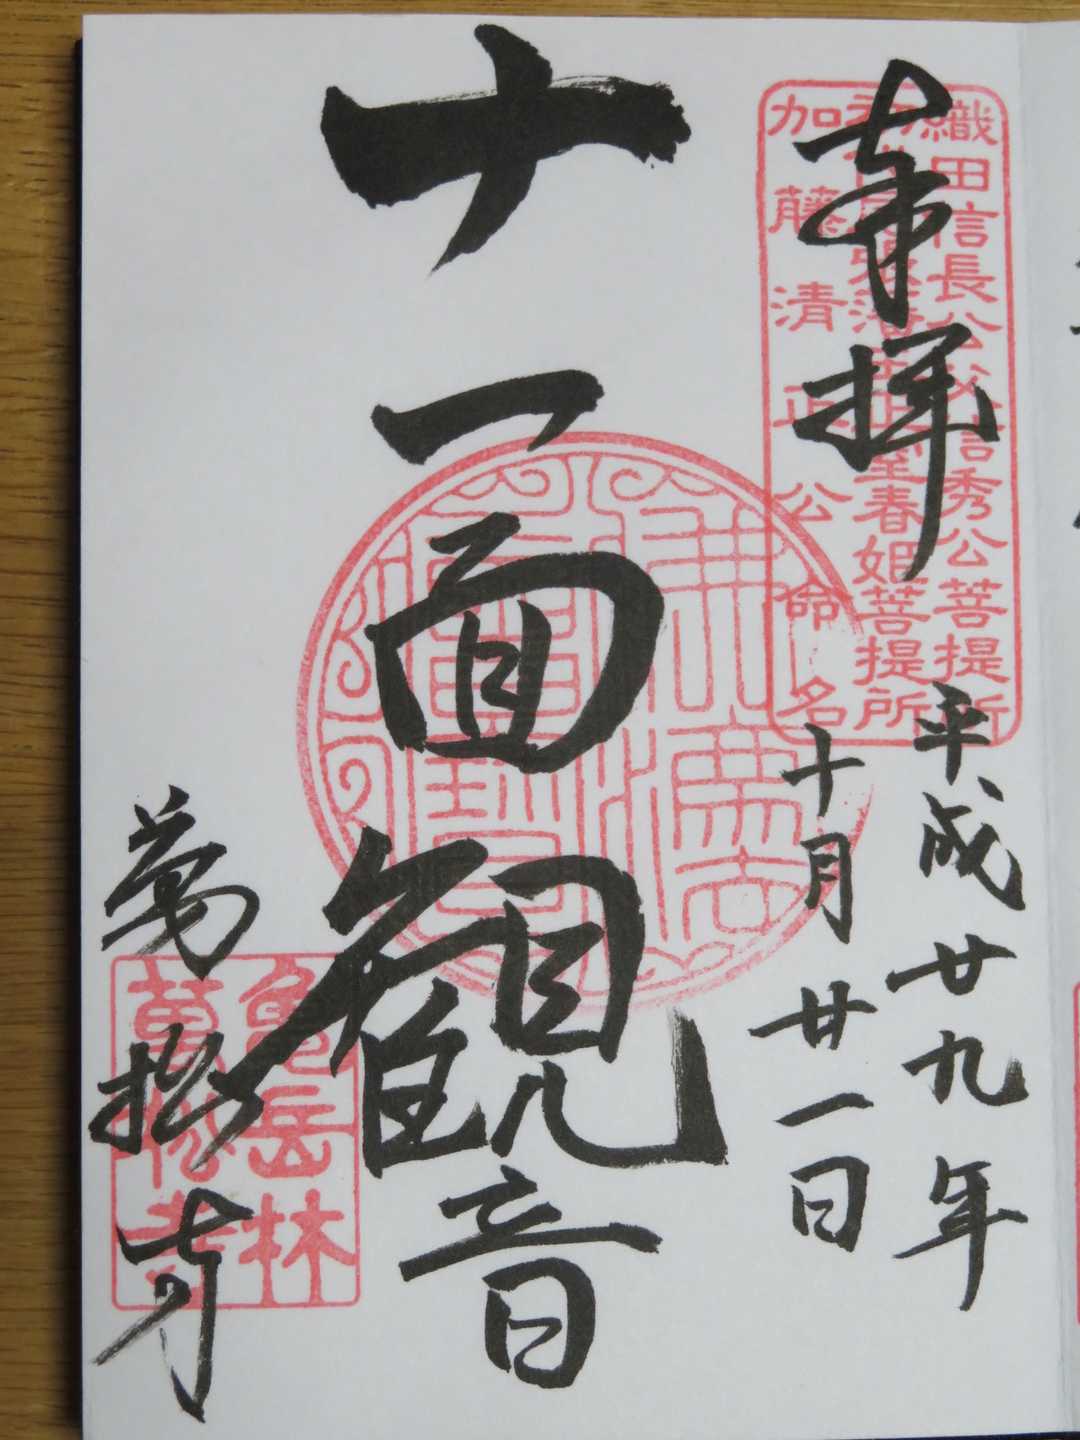 奉拝
織田信長公父信秀公菩提所
初代尾張藩主正室春姫菩提所
加藤清正公命名
平成廿九年
十月廿一日
十一面観音
萬松寺
亀岳林
萬松寺